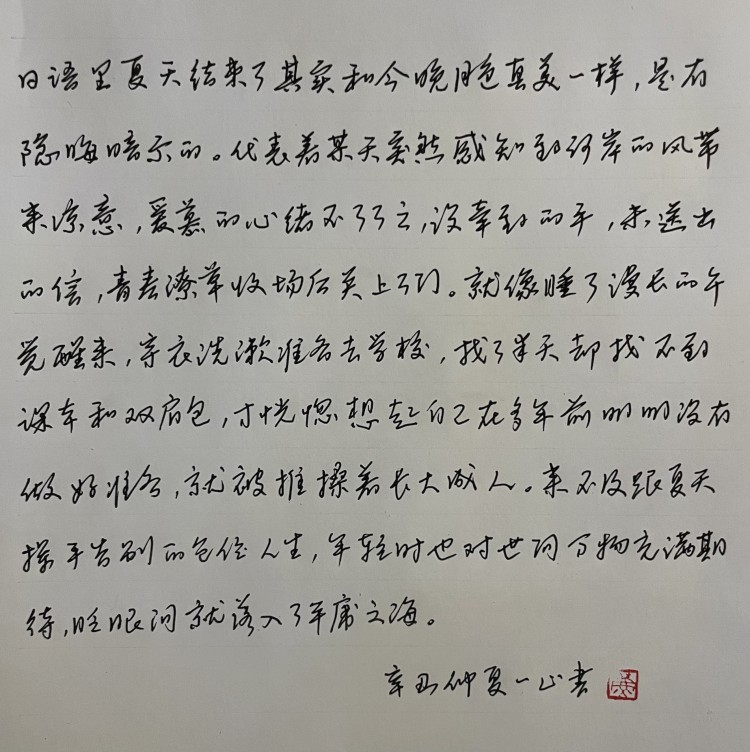 日语里夏天结束了其实和今晚月色真美一样，是有
隐晦暗示的。代表着某天突然感知到河岸的风带
来凉意，爱慕的心绪不了了之，没牵到的手，未送出
的信，青春潦草收场后关上了门。就像睡了漫长的午
觉醒来，穿衣洗漱准备去学校，找了半天却找不到
课本和双肩包，才恍惚想起自己在多年前明明没有
做好准备，就被推搡着长大成人。来不及跟夏天
挥手告别的各位人生，年轻时也对世间万物充满期
待，眨眼间就落入了平庸之海。
辛丑仲夏一止书